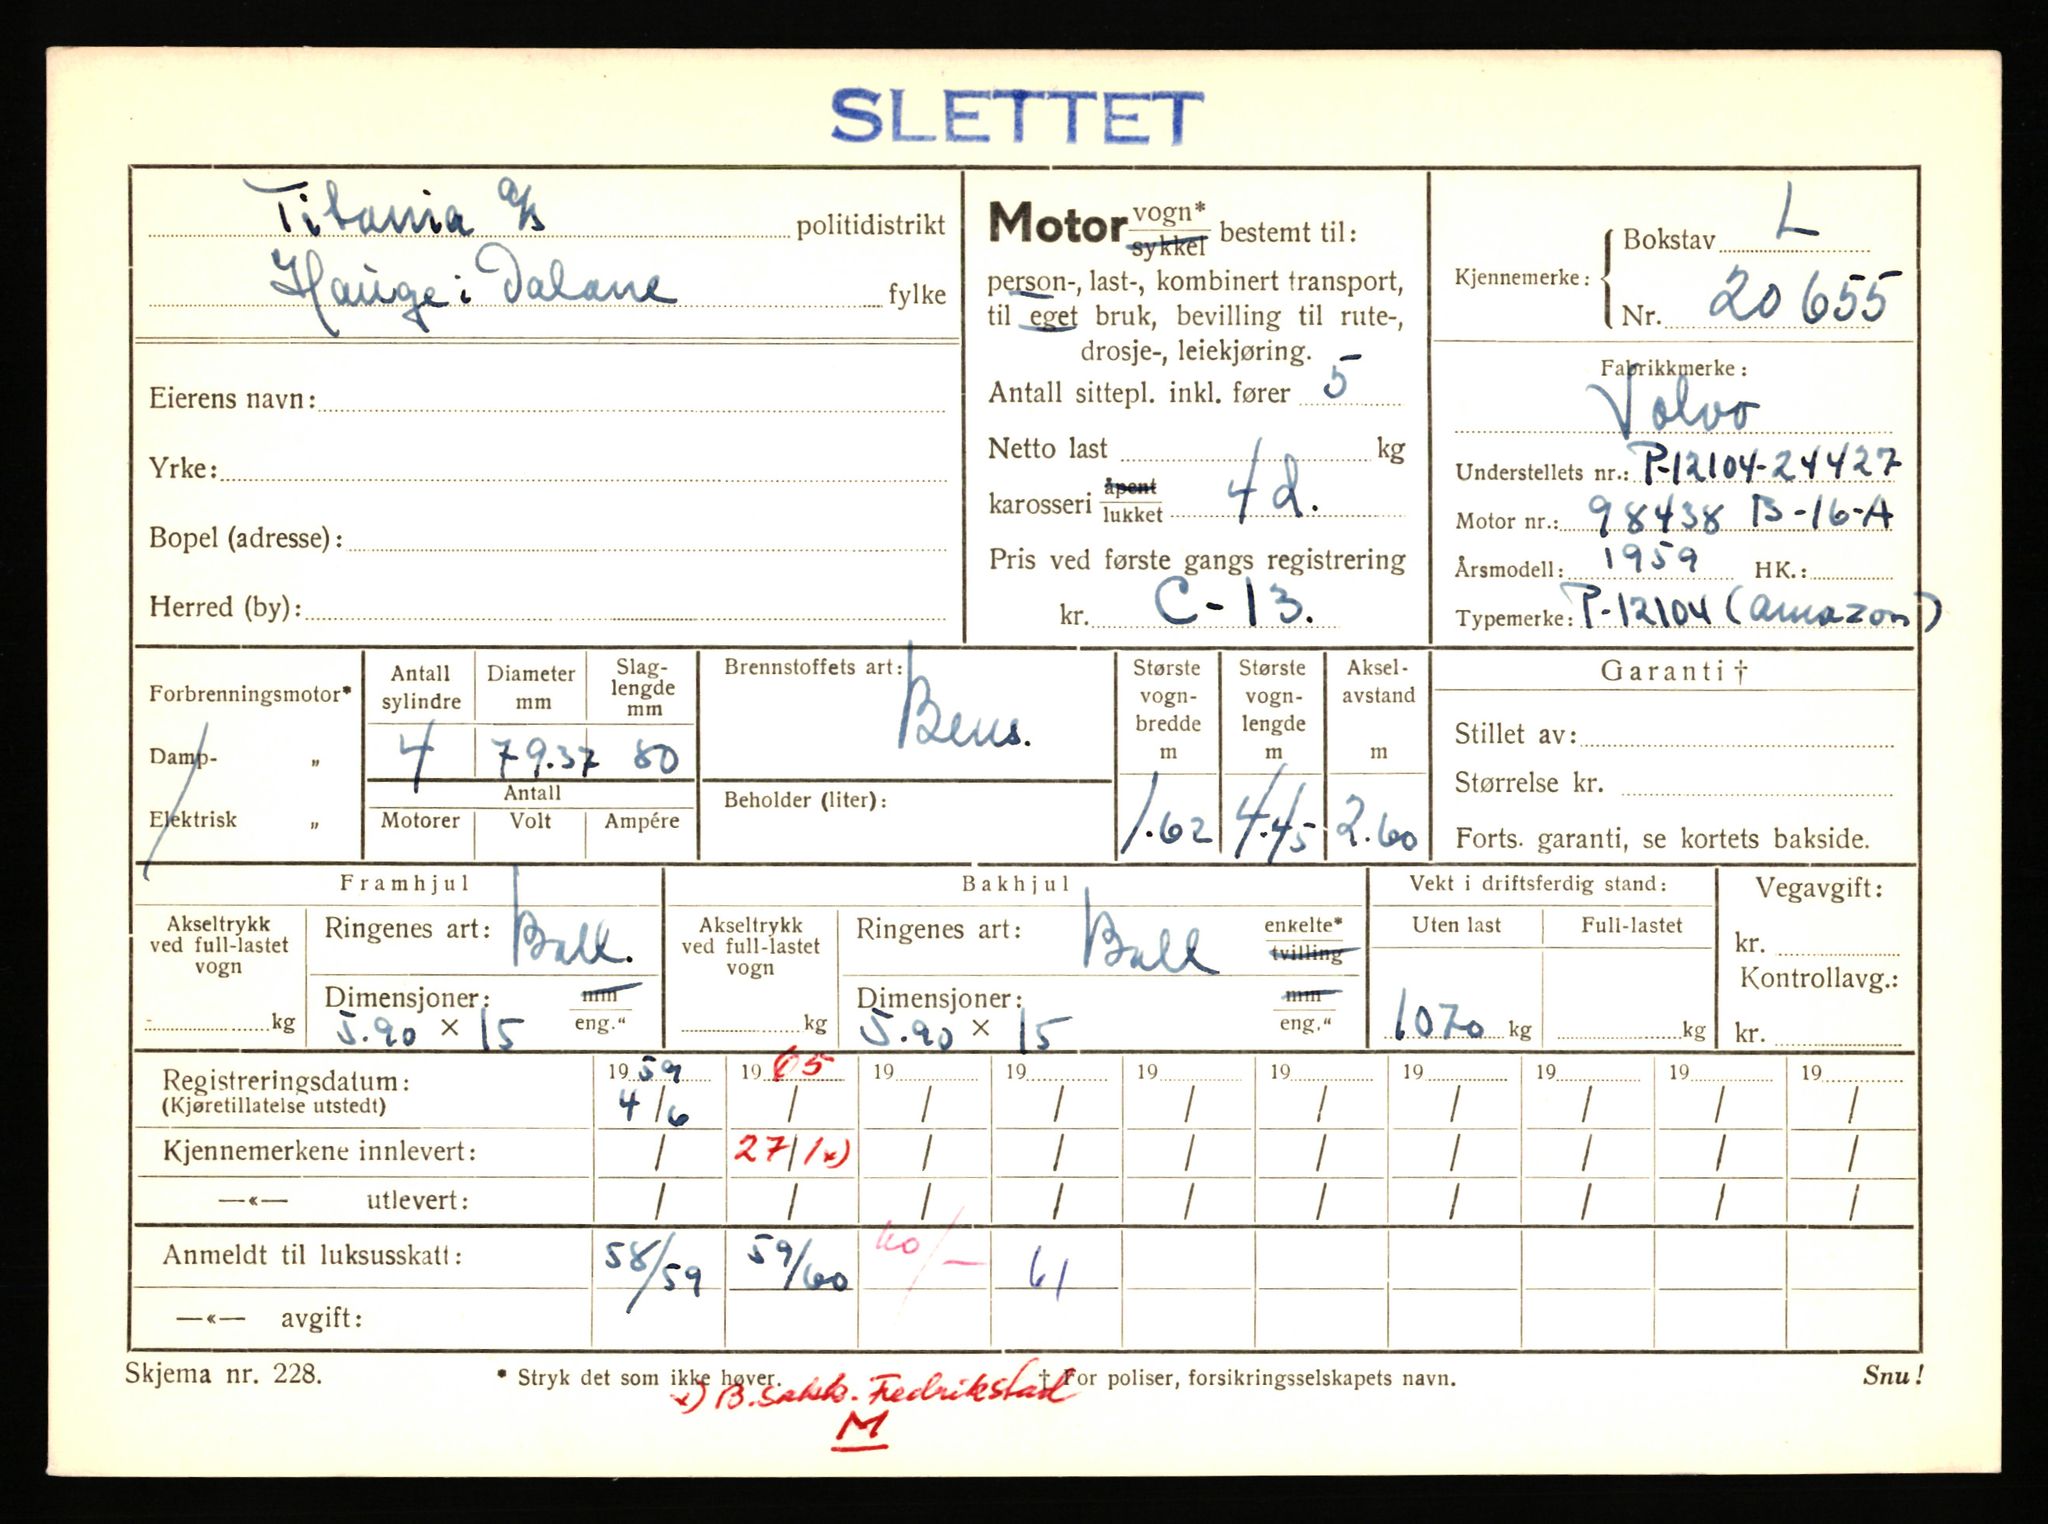 SLETTET
Titania a/s politidistrikt
Hauge i Dalane fylke
Eierens navn:
Yrke:
Bopel (adresse):
Herred (by):
Motor vogn* sykkel bestemt til:
person-, last-, kombinert transport,
til eget bruk, bevilling til rute-,
drosje-, leiekjøring.
Antall sittepl. inkl. fører 5
Netto last kg
karosseri åpent lukket 4 d.
Pris ved første gangs registrering
kr. C-13.
Kjennemerke: Bokstav L
Nr. 20655
Fabrikkmerke:
Volvo
Understellets nr.: P-12104-24427
Motor nr.: 98438 B-16-A
Årsmodell: 1959 HK.:
Typemerke: P-12104 (amazon)
Forbrenningsmotor*
Damp- „
Elektrisk „
Antall sylindre
Diameter mm
Slag-lengde mm
4 79.37 80
Antall
Motorer Volt Ampére
Brennstoffets art: Bens.
Beholder (liter):
Største vogn-bredde m
1.62
Største vogn-lengde m
4.45
Aksel-avstand m
2.60
Garanti †
Stillet av:
Størrelse kr.
Forts. garanti, se kortets bakside.
Framhjul
Akseltrykk ved full-lastet vogn
kg
Ringenes art: Ball.
Dimensjoner: mm eng."
5.90 × 15
Bakhjul
Akseltrykk ved full-lastet vogn
kg
Ringenes art: Ball enkelte* tvilling
Dimensjoner: mm eng."
5.90 × 15
Vekt i driftsferdig stand:
Uten last Full-lastet
1070 kg kg
Vegavgift:
kr.
Kontrollavg.:
kr.
Registreringsdatum: 19 59 19 65 19 19 19 19 19 19 19 19
(Kjøretillatelse utstedt) 4/6 / / / / / / / / /
Kjennemerkene innlevert: / 27/1 x) / / / / / / / /
—«— utlevert: / / / / / / / / / /
Anmeldt til luksusskatt: 58/59 59/60 60/— 61
—«— avgift:
Skjema nr. 228.
* Stryk det som ikke høver.
† For poliser, forsikringsselskapets navn.
Snu!
x) B. Fredrikstad
M